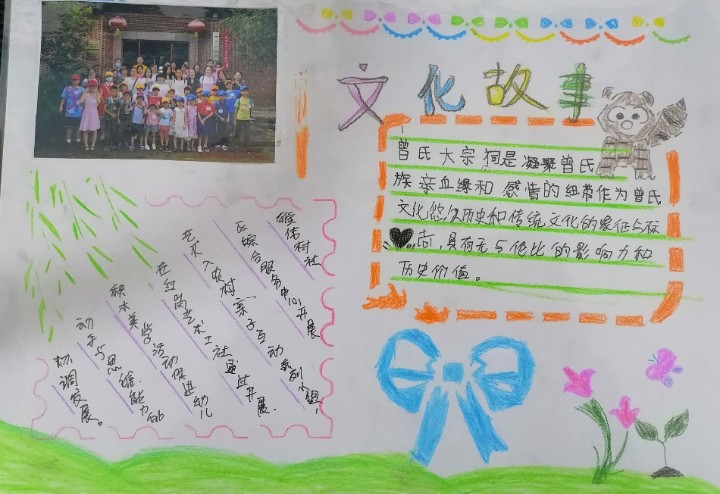 文化故事
曾氏大宗祠是凝聚曾氏
族亲血缘和感情的纽带作为曾氏
文化悠久历史和传统文化的象征与标
,具有无与伦比的影响力和
历史价值。
村社
区综合服务中心开展
艺术入农村,亲子互动系列小组,
在红岗艺术工社通过开展
积木美学活动促进幼儿
动手与思维能力的
协调发展。